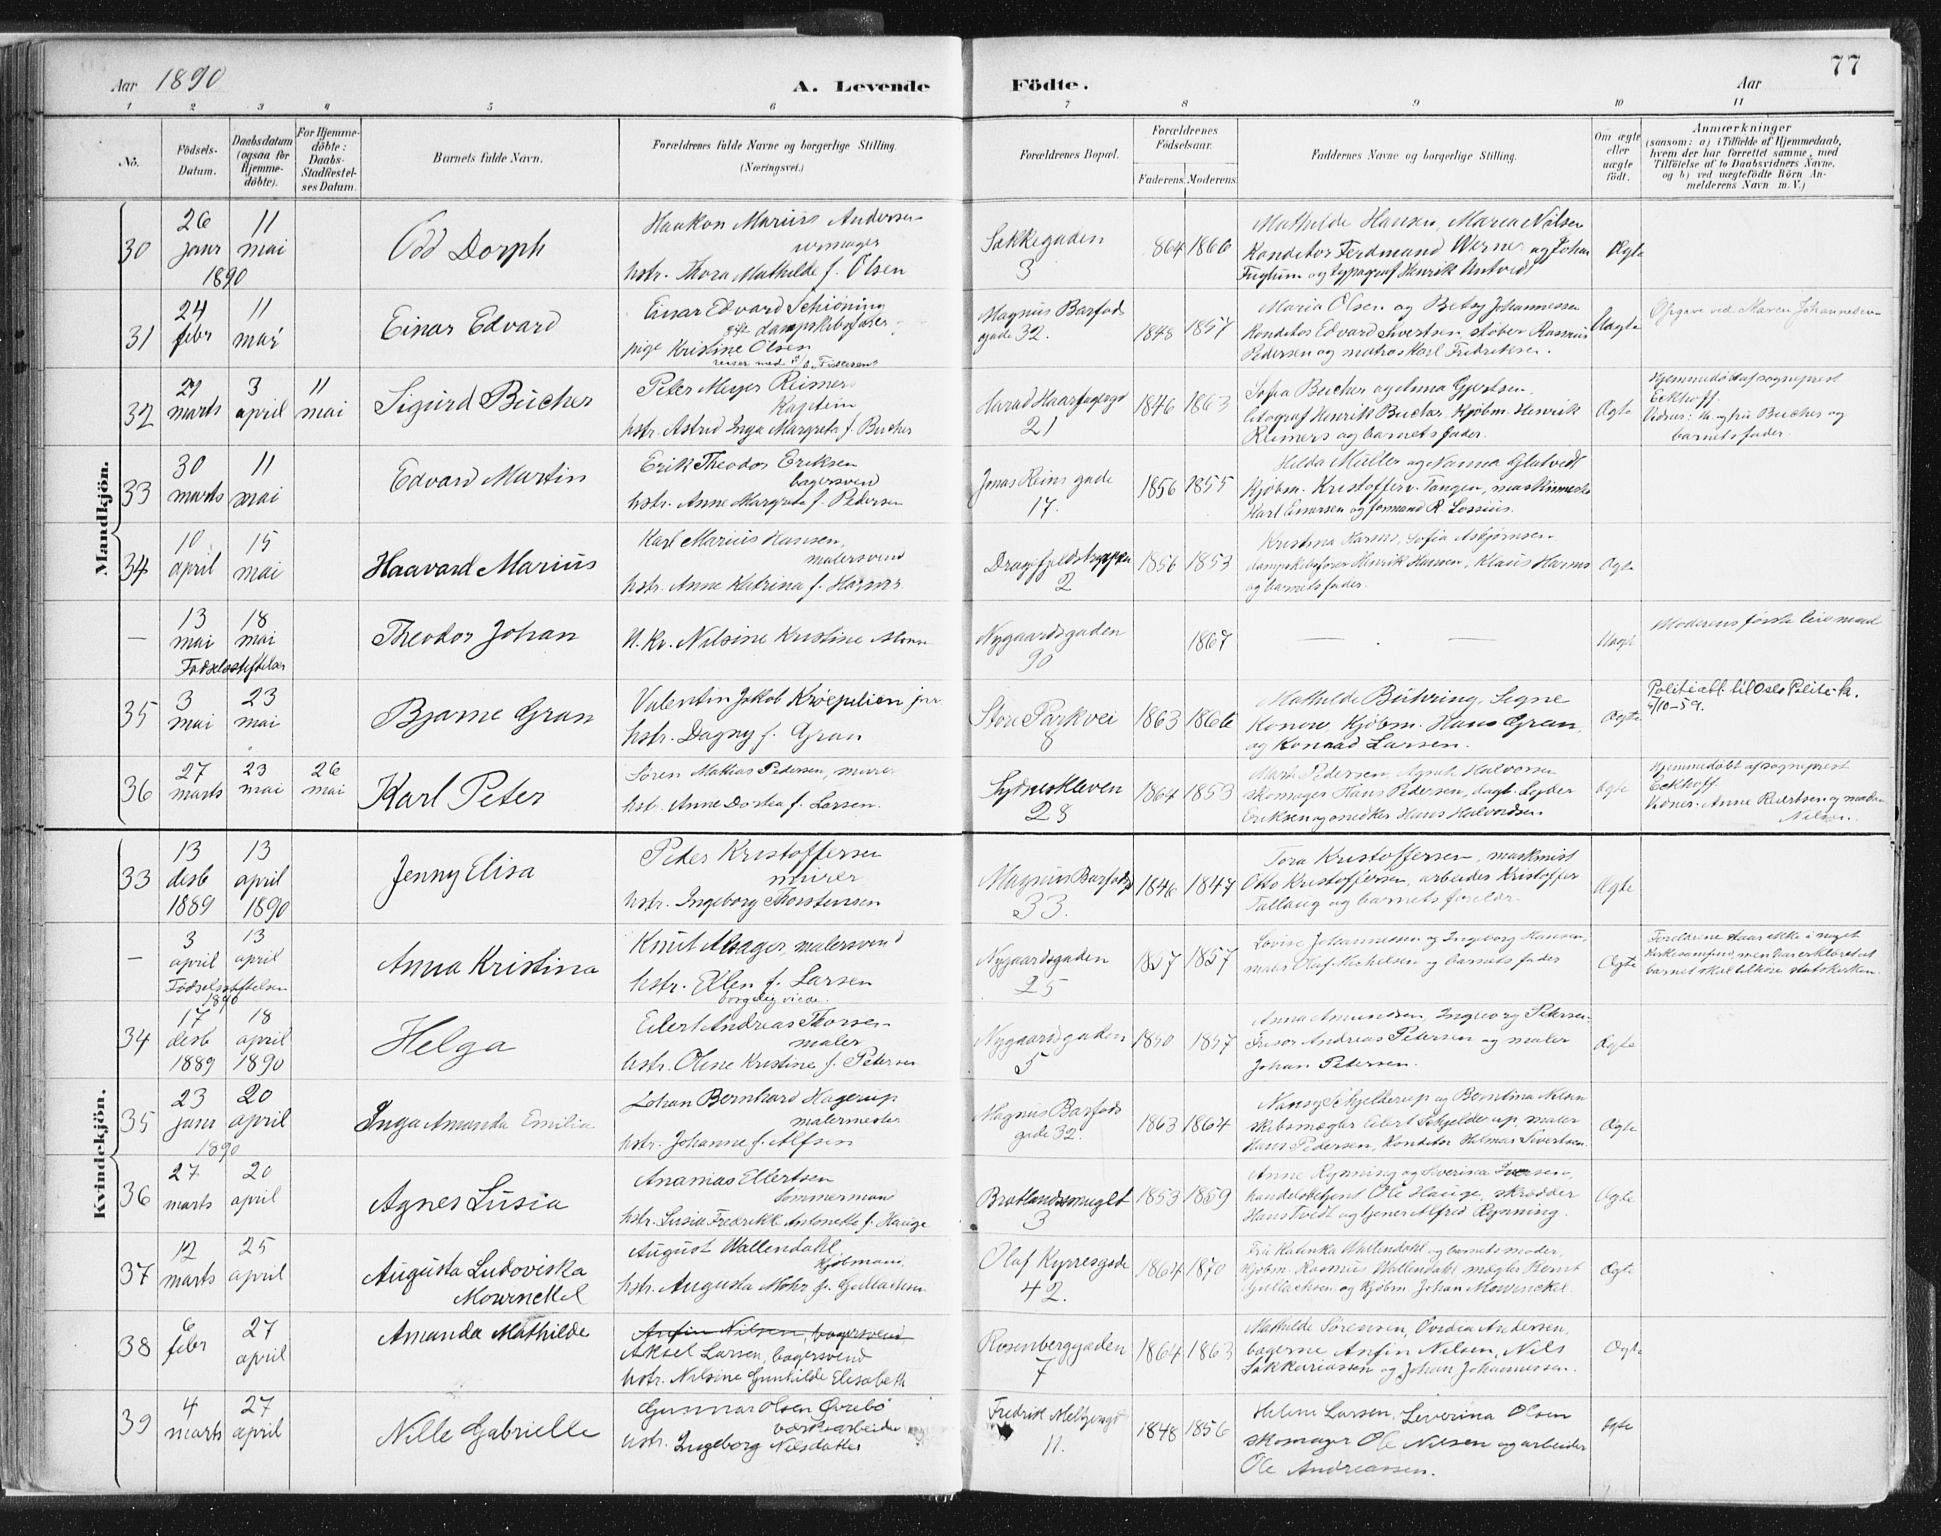 Aar 1890
A. Levende
Födte.
Aar
77
1 2 3 4 5 6 7 8 9 10 11
No.
Födsels-
Datum.
Daabsdatum
(ogsaa for
Hjemme-
döbte).
For Hjemme-
döbte:
Daabs-
Stadfæstel-
ses Datum.
Barnets fulde Navn.
Forældrenes fulde Navne og borgerlige Stilling.
(Næringsvei.)
Forældrenes Bopæl.
Forældrenes
Födselsaar.
Faderens. Moderens.
Faddernes Navne og borgerlige Stilling.
Om ægte
eller
uægte
födt.
Anmærkninger
(saasom: a) i Tilfælde af Hjemmedaab,
hvem der har forrettet samme, med
Tilföielse af to Daabsvidners Navne,
og b) ved uægtefödte Börn An-
melderens Navn m. V.)
Mandkjön.
30
26 janr 1890
11 mai
Odd Dorph
Haakon Marius Andersen
urmager
hstr. Thora Mathilde f. Olsen
Sakkegaden
3
864 1866
Mathilde Hansen, Maria Nilsen
Konditor Ferdinand Werner og Johan
Fuglum og typograf Henrik Antvedt
Ægte
31
24 febr
11 mai
Einar Edvard
Einar Edvard Schiöning
gift dampskibsfører
pige Kristine Olsen
Magnus Barfods
gade 32.
1848 1857
Maria Olsen og Betsy Johannessen
Konditor Edvard Sivertsen, støber Rasmus
Pedersen og matros Karl Fredriksen.
Uægte
Opgave ved Maren Johannesen
32
27 marts
3 april
11 mai
Sigurd Bücher
Peter Meyer Reimers
Kaptein
hstr. Astrid Inga Margreta f. Bucher
Harald Haarfagersgd
21
1846 1863
Sofia Bucher og Anna Gjertsen
litograf Henrik Bucher, Kjøbm. Henrik
Reimers og barnets fader.
Ægte
Hjemmedøbt af sogneprest
Eckhoff.
Vidner: hr. og fru Bucher og
barnets fader.
33
30 marts
11 mai
Edvard Martin
Erik Theodor Eriksen
bagersvend
hstr. Anne Margreta f. Pedersen
Jonas Reins gade
17.
1856 1855
Hilda Müller og Nanna Glatvedt
Kjøbm. Kristoffer v. Tangen, maskinmester
Karl Einarsen og formand R. Lossius.
34
10 april
15 mai
Haavard Marius
Karl Marius Hansen,
malersvend
hstr. Anne Katrina f. Harms
Dragefjeldstrappen
2
1856 1853
Kristina Harms, Sofia Asbjørnsen.
dampskibsfører Henrik Hansen, Klaus Harms
og barnets fader.
Ægte
—
13 mai
18 mai
Fødselsstiftelsen
Theodor Johan
U. Kv. Nilsine Kristine
Nygaardsgaden
90
1867
— —
Uægt
Moderens første leiermaal
35
3 mai
23 mai
Bjarne Gran
Valentin Jakob Krøepelien jnr.
hstr. Dagny f. Gran
Store Parkvei
8
1863 1866
Mathilde Bühring, Signe
Konow, Kjøbm. Hans Gran,
og Konrad Larsen.
Ægte
Politiatt. til Oslo Politik.
7/10-59.
36
27 marts
23 mai
26 mai
Karl Peter
Søren Mathias Pedersen, murer
hstr. Anne Dortea f. Larsen.
Sydneskleven
28
1864 1853
Marta Pedersen, Agnete Halvorsen
skomager Hans Pedersen, dagl. Lyder
Eriksen og snedker Hans Halvordsen
Ægte
Hjemmedøbt af sogneprest
Eckhoff.
Vidner: Anne Reiertsen og madam
Nilsen.
Kvindekjön.
33
13 desb 1889
13 april 1890
Jenny Elisa
Peder Kristoffersen
murer
hstr. Ingeborg Thorstensen
Magnus Barfodsg
33.
1846 1847
Tora Kristoffersen, maskinist
Otto Kristoffersen, arbeider Kristoffer
Tallaug og barnets forældr.
Ægte
—
3 april
13 april
Fødselsstiftelsen
1890
Anna Kristina
Knut Alsager, malersvend
hstr. Ellen f. Larsen
borgerlig viede.
Nygaardsgaden
25
1857 1857
Lovise Johannessen og Ingeborg Hansen,
maler Olaf Michelsen og barnets fader
Ægte
Forældrene staar ikke i noget
kirkesamfund, men har erklæret at
barnet skal tilhøre statskirken.
34
17 desb 1889
18 april 1890
Helga
Eilert Andreas Thorsen
maler
hstr. Oline Kristine f. Petersen
Nygaardsgaden
5
1850 1857
Anna Amundsen, Ingeborg Petersen
Frisør Andreas Petersen og maler
Johan Petersen.
Ægte
35
23 janr 1890
20 april
Inga Amanda Emilia
Johan Bernhard Hagerup
malermester
hstr. Johanne f. Alfsen
Magnus Barfods
gade 32.
1863 1864
Nancy Schjelderup og Berntina Nilsen
skibsmægler Eilert Schjelderup, maler
Hans Pedersen, Konditor Hilmar Sivertsen.
Ægte
36
27 marts
20 april
Agnes Lusia
Ananias Ellertsen
tømmermand
hstr. Lusia Fredrikk Antonette f. Hauge
Bratlandssmuget
3
1853 1859
Anne Rynning og Severina Iversen,
handelsbetjent Ole Hauge, skrædder
Hans Tvedt og tjener Alfred Rynning.
Ægte
37
12 marts
25 april
Augusta Ludoviska
Mowinckel
August Wallendahl
Kjøbmand.
hstr. Augusta Mohr f. Gullachsen
Olaf Kyrresgade
42.
1864 1870
Fru Katinka Wallendahl og barnets moder,
Kjøbm. Rasmus Wallendahl, mægler Herut
Gullachsen og Kjøbm. Johan Mowinckel.
Ægte
38
6 febr
27 april
Amanda Mathilde
Anfin Nilsen, bagersvend
Aksel Larsen, bagersvend
hstr. Nilsine Gunhilde Elisabeth
Rosenberggaden
7
1864 1863
Mathilde Sørensen, Ovidia Andersen,
bagerne Anfin Nilsen, Nils
Sakkariassen og Johan Johannessen.
Ægte
39
4 marts
27 april
Nille Gabrielle
Gunnar Olsen Øvrebø
værksarbeider
hstr. Ingeborg Nilsdatter
Fredrik Meltzersgd
11.
1848 1856
Helene Larsen, Severina Olsen
skomager Ole Nilsen og arbeider
Ole Andreassen.
Ægte